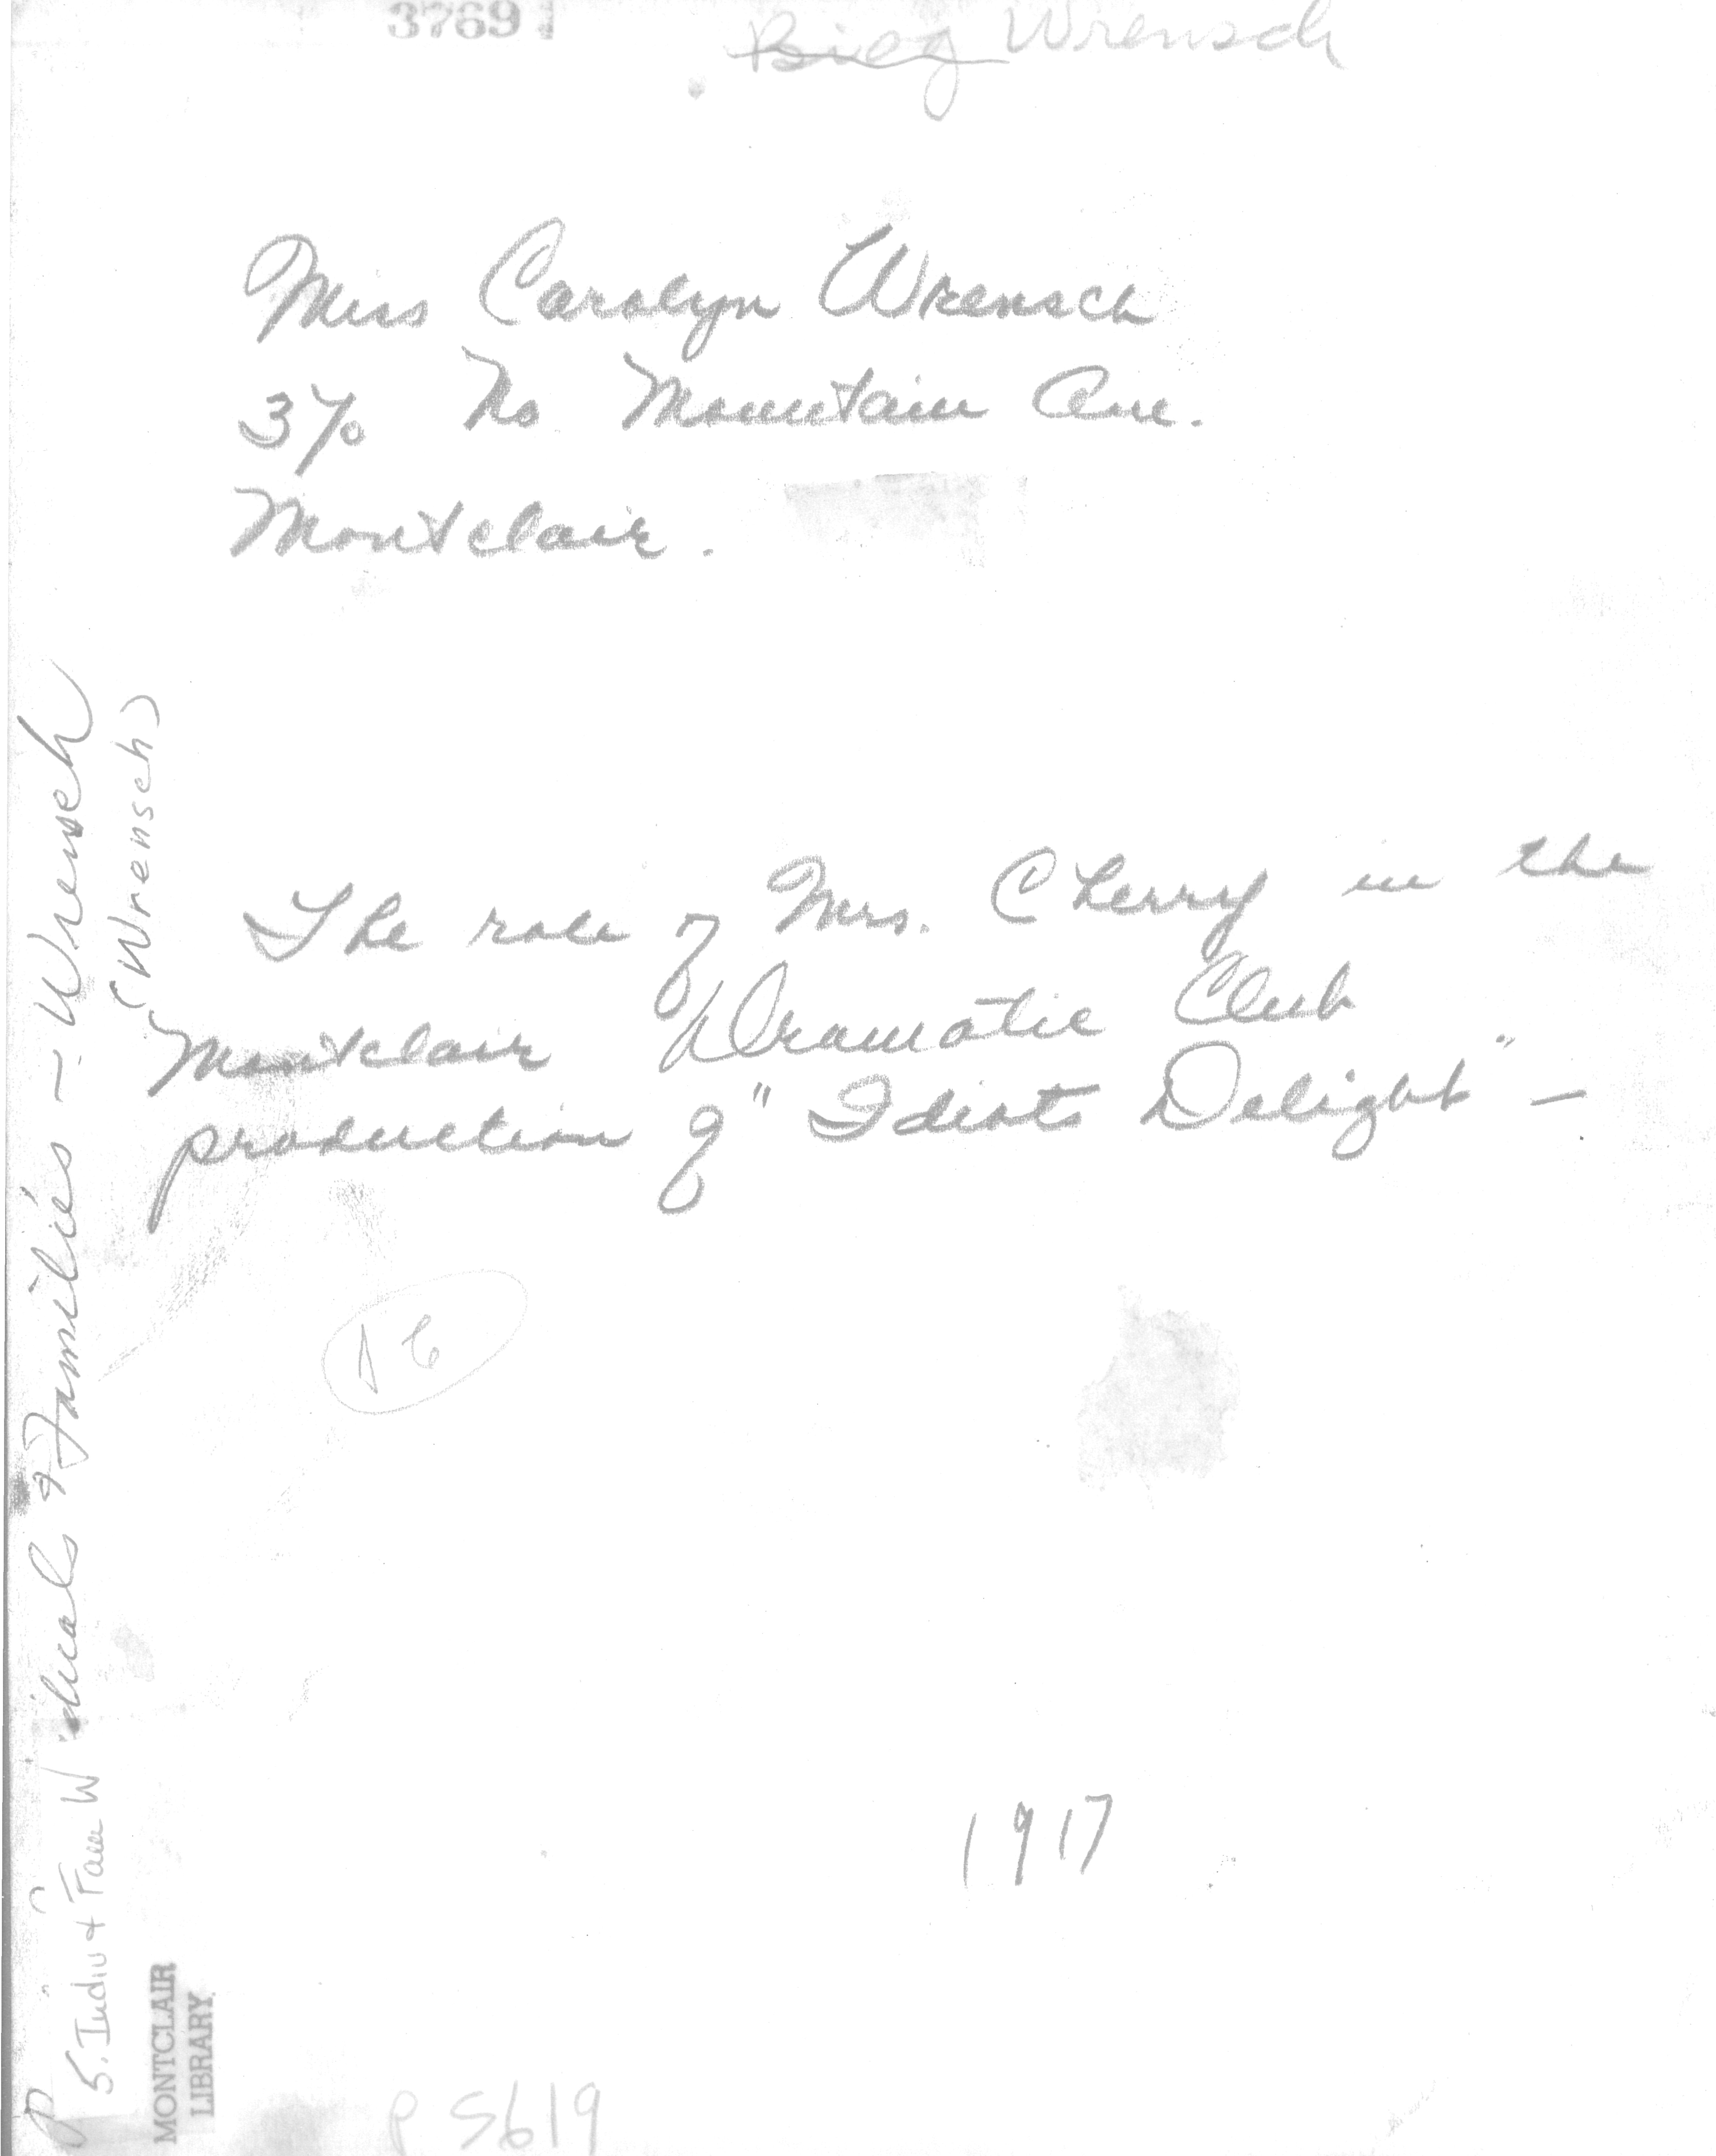 3769
Biog Wrensch
Miss Carolyn Wrensch
370 No Mountain Ave.
Montclair.
The role of Mrs. Cherry in the
Montclair Dramatic Club
production of "Idiots Delight" —
16
1917
P 5619
iduals & Families - Wrensch
(Wrensch)
5. Indiv & Fam W
MONTCLAIR
LIBRARY